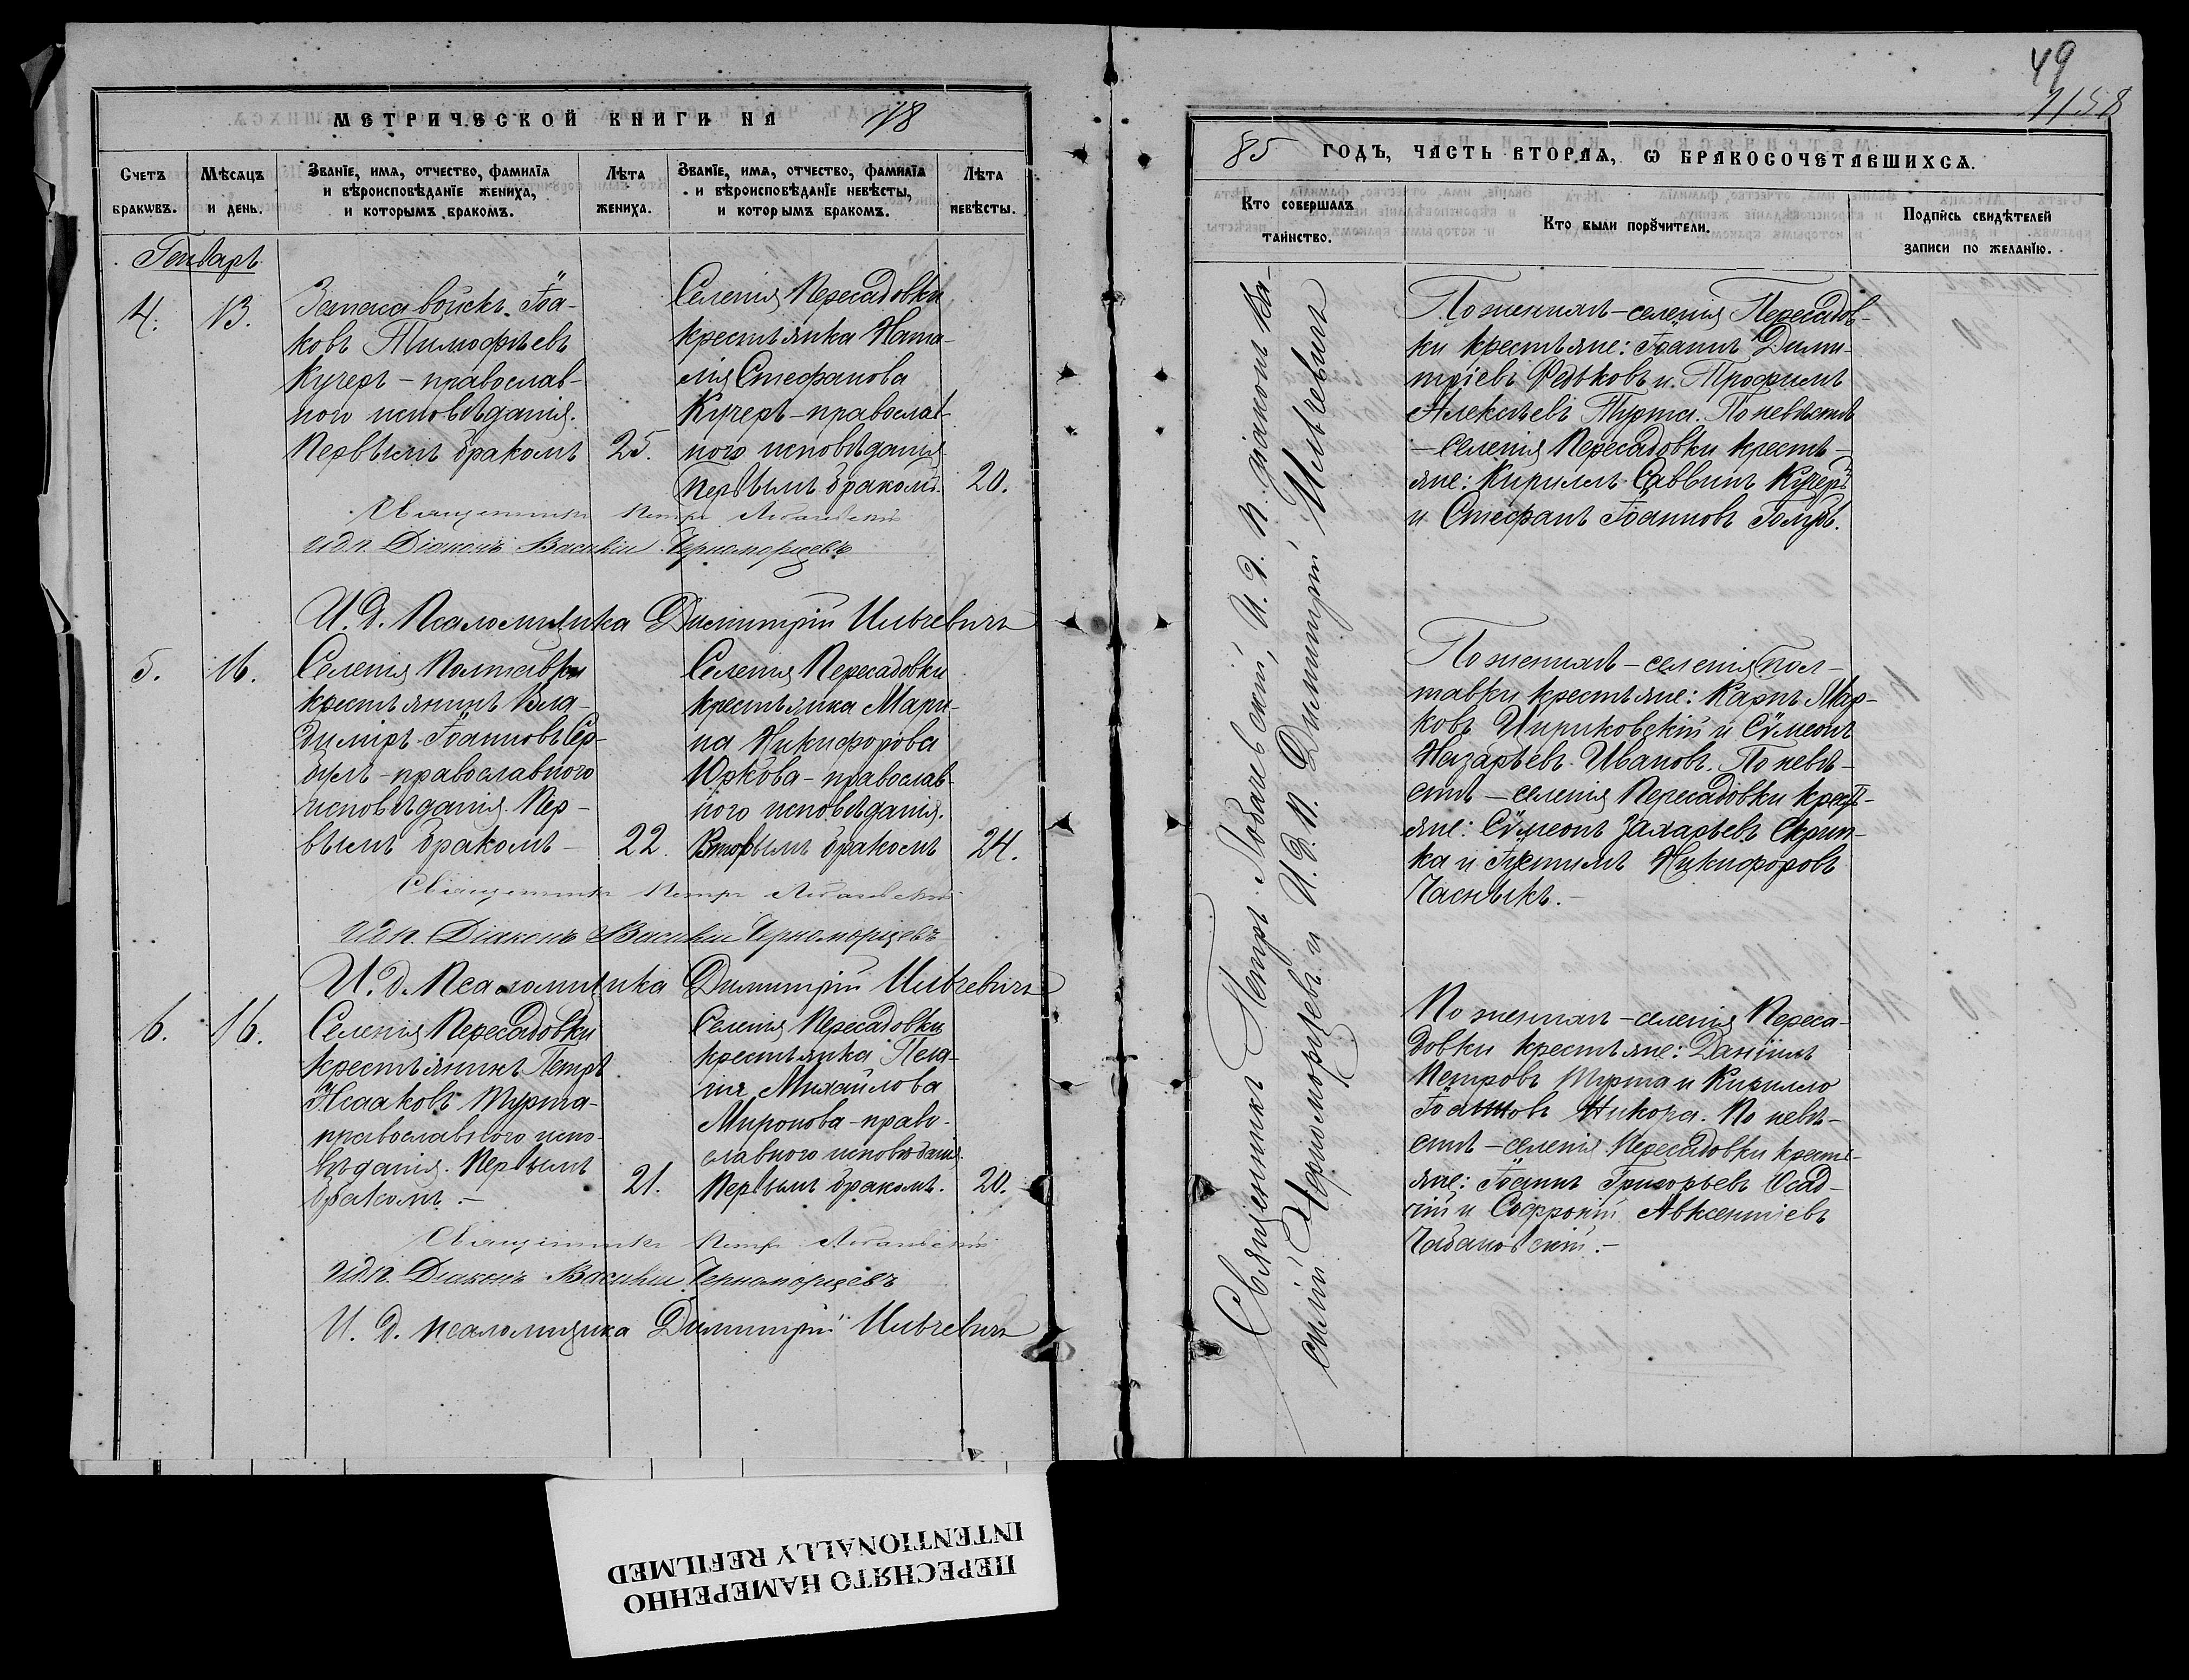 МЕТРИЧЕСКОЙ КНИГИ НА 18
Счетъ браковъ.
Мѣсяцъ и день.
Званїе, имя, отчество, фамилїя
и вѣроисповѣданїе жениха,
и которымъ бракомъ.
Лѣта жениха.
Званїе, имя, отчество, фамилїя
и вѣроисповѣданїе невѣсты,
и которымъ бракомъ.
Лѣта невѣсты.
Генварь
4. 13.
Запаса войскъ Іоа-
ковъ Тимофѣевъ
Кучеръ - православ-
ного исповѣданія.
Первымъ бракомъ 25.
Селенія Пересадовки
крестьянка Ната-
лія Стефанова
Кучеръ - православ-
ного исповѣданія
Первымъ бракомъ. 20.
Священникъ Петръ Лобачевскій
И.д.п. Діаконъ Василій Черноморцевъ
И. д. Псаломщика Димитрій Ильчевичъ
5. 16.
Селенія Полтавки
крестьянинъ Вла-
димiръ Іоанновъ Сер-
булъ - православного
исповѣданія. Пер-
вымъ бракомъ - 22.
Селенія Пересадовки
крестьянка Мари-
на Никифорова
Юркова - православ-
ного исповѣданія.
Вторымъ бракомъ 24.
Священникъ Петръ Лобачевскій
И.д.п. Діаконъ Василій Черноморцевъ
И. д. Псаломщика Димитрій Ильчевичъ
6. 16.
Селенія Пересадовки
крестьянинъ Петръ
Исааковъ Турта -
православного испо-
вѣданія. Первымъ
бракомъ. - 21.
Селенія Пересадовки
крестьянка Пела-
гія Михайлова
Миронова - право-
славного исповѣданія.
Первымъ бракомъ. 20.
Священникъ Петръ Лобачевскій
И.д.п. Діаконъ Василій Черноморцевъ
И. д. псаломщика Димитрій Ильчевичъ
49
1158
85 ГОДЪ, ЧАСТЬ ВТОРАЯ, Ѡ БРАКОСОЧЕТАВШИХСЯ.
Кто совершалъ таинство.
Кто были порꙋчители.
Подпись свидѣтелей
записи по желанїю.
Священникъ Петръ Лобачевскій, И. д. п. діаконъ Ва-
силій Черноморцевъ и И. д. п. Димитрій Ильчевичъ
По женихѣ - селенія Пересадов-
ки крестьяне: Іоаннъ Дими-
тріевъ Редьковъ и Трофимъ
Алексѣевъ Турта. По невѣстѣ
- селенія Пересадовки кресть-
яне: Кириллъ Саввинъ Кучеръ
и Стефанъ Іоанновъ Голубъ.
По женихѣ - селенія Пол-
тавки крестьяне: Карпъ Мар-
ковъ Чириковскій и Сѵмеонъ
Назарьевъ Ивановъ. По невѣ-
стѣ - селенія Пересадовки кресть-
яне: Сѵмеонъ Захарьевъ Скрип-
ка и Никифоровъ
Пасѣкъ. -
По женихѣ - селенія Переса-
довки крестьяне: Даніилъ
Петровъ Турта и Кирилло
Іоанновъ Никора. По невѣ-
стѣ - селенія Пересадовки кресть-
яне: Іоаннъ Григорьевъ Осад-
чій и Софроній Авксентіевъ
Чабановскій. -
ПЕРЕСНЯТО НАМЕРЕННО
INTENTIONALLY REFILMED